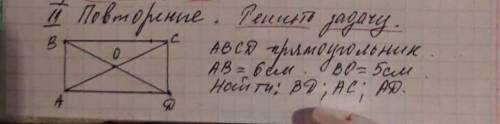 II Повторение. Решить задачу.
B C
O
A D
ABCD прямоугольник.
AB = 6см. BO = 5см.
Найти: BD; AC; AD.